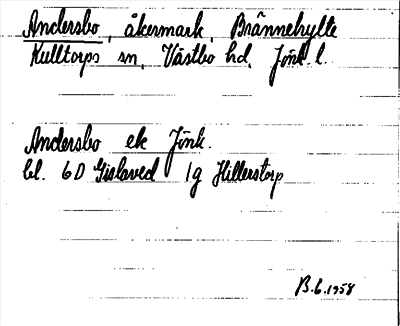 Andersbo, åkermark, Brännehylte
Kulltorps sn, Västbo hd, Jönk. l.
Andersbo ek Jönk.
bl. 6D Gislaved 1g Hillerstorp
B.6.1958